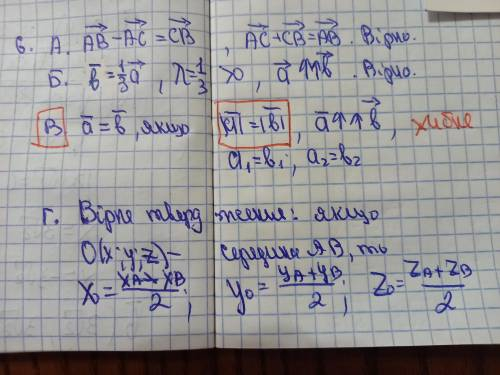 6. А. AB⃗ − AC⃗ = CB⃗, AC⃗ + CB⃗ = AB⃗. Вірно.
Б. b⃗ = 1/3 a⃗, λ = 1/3 > 0, a⃗ ↑↑ b⃗. Вірно.
В a⃗ = b⃗, якщо |a⃗| = |b⃗|, a⃗ ↑↑ b⃗, хибне
a₁ = b₁; a₂ = b₂
Г. Вірне твердження: якщо
O(x; y; z) – середина AB, то
x₀ = (xA + xB)/2; y₀ = (yA + yB)/2; z₀ = (zA + zB)/2